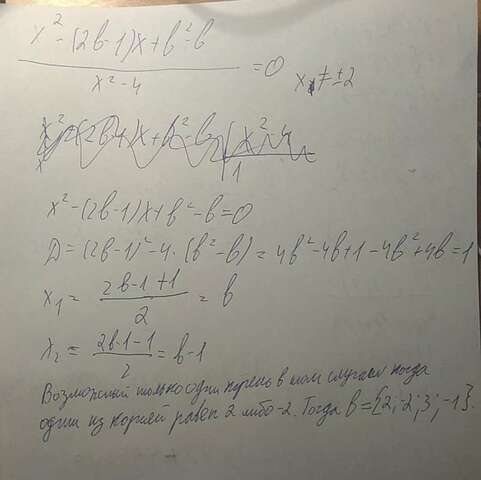 x² - (2b-1)x + b² - b
x² - 4
= 0
x ≠ ±2
x² - (2b-1)x + b² - b = 0
D = (2b-1)² - 4·(b² - b) = 4b² - 4b + 1 - 4b² + 4b = 1
x₁ = (2b-1+1)/2 = b
x₂ = (2b-1-1)/2 = b-1
Возможный только один корень в том случаи когда
один из корней равен 2 либо -2. Тогда b = {2; -2; 3; -1}.